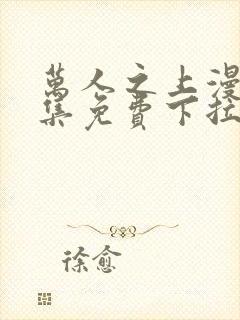 萬人之上漫
集免費下拉
徐愈